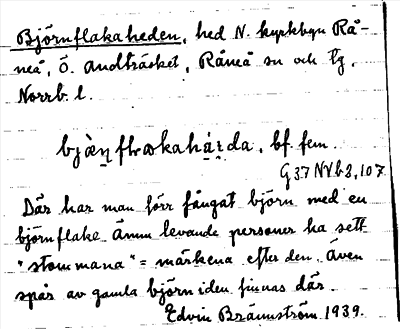 Björnflakaheden, hed N. kyrkbyn Rå-
neå, Ö. Andträsket, Råneå sn och tg,
Norrb. l.
bjὰn̥flωkahá̤i̤da, bf. fem.
G37 NVb2, 107
Där har man förr fångat björn med en
björnflake. Ännu levande personer ha sett
"stommana" = märkena efter den. Även
spår av gamla björniden finnas där.
Edvin Brännström 1939.